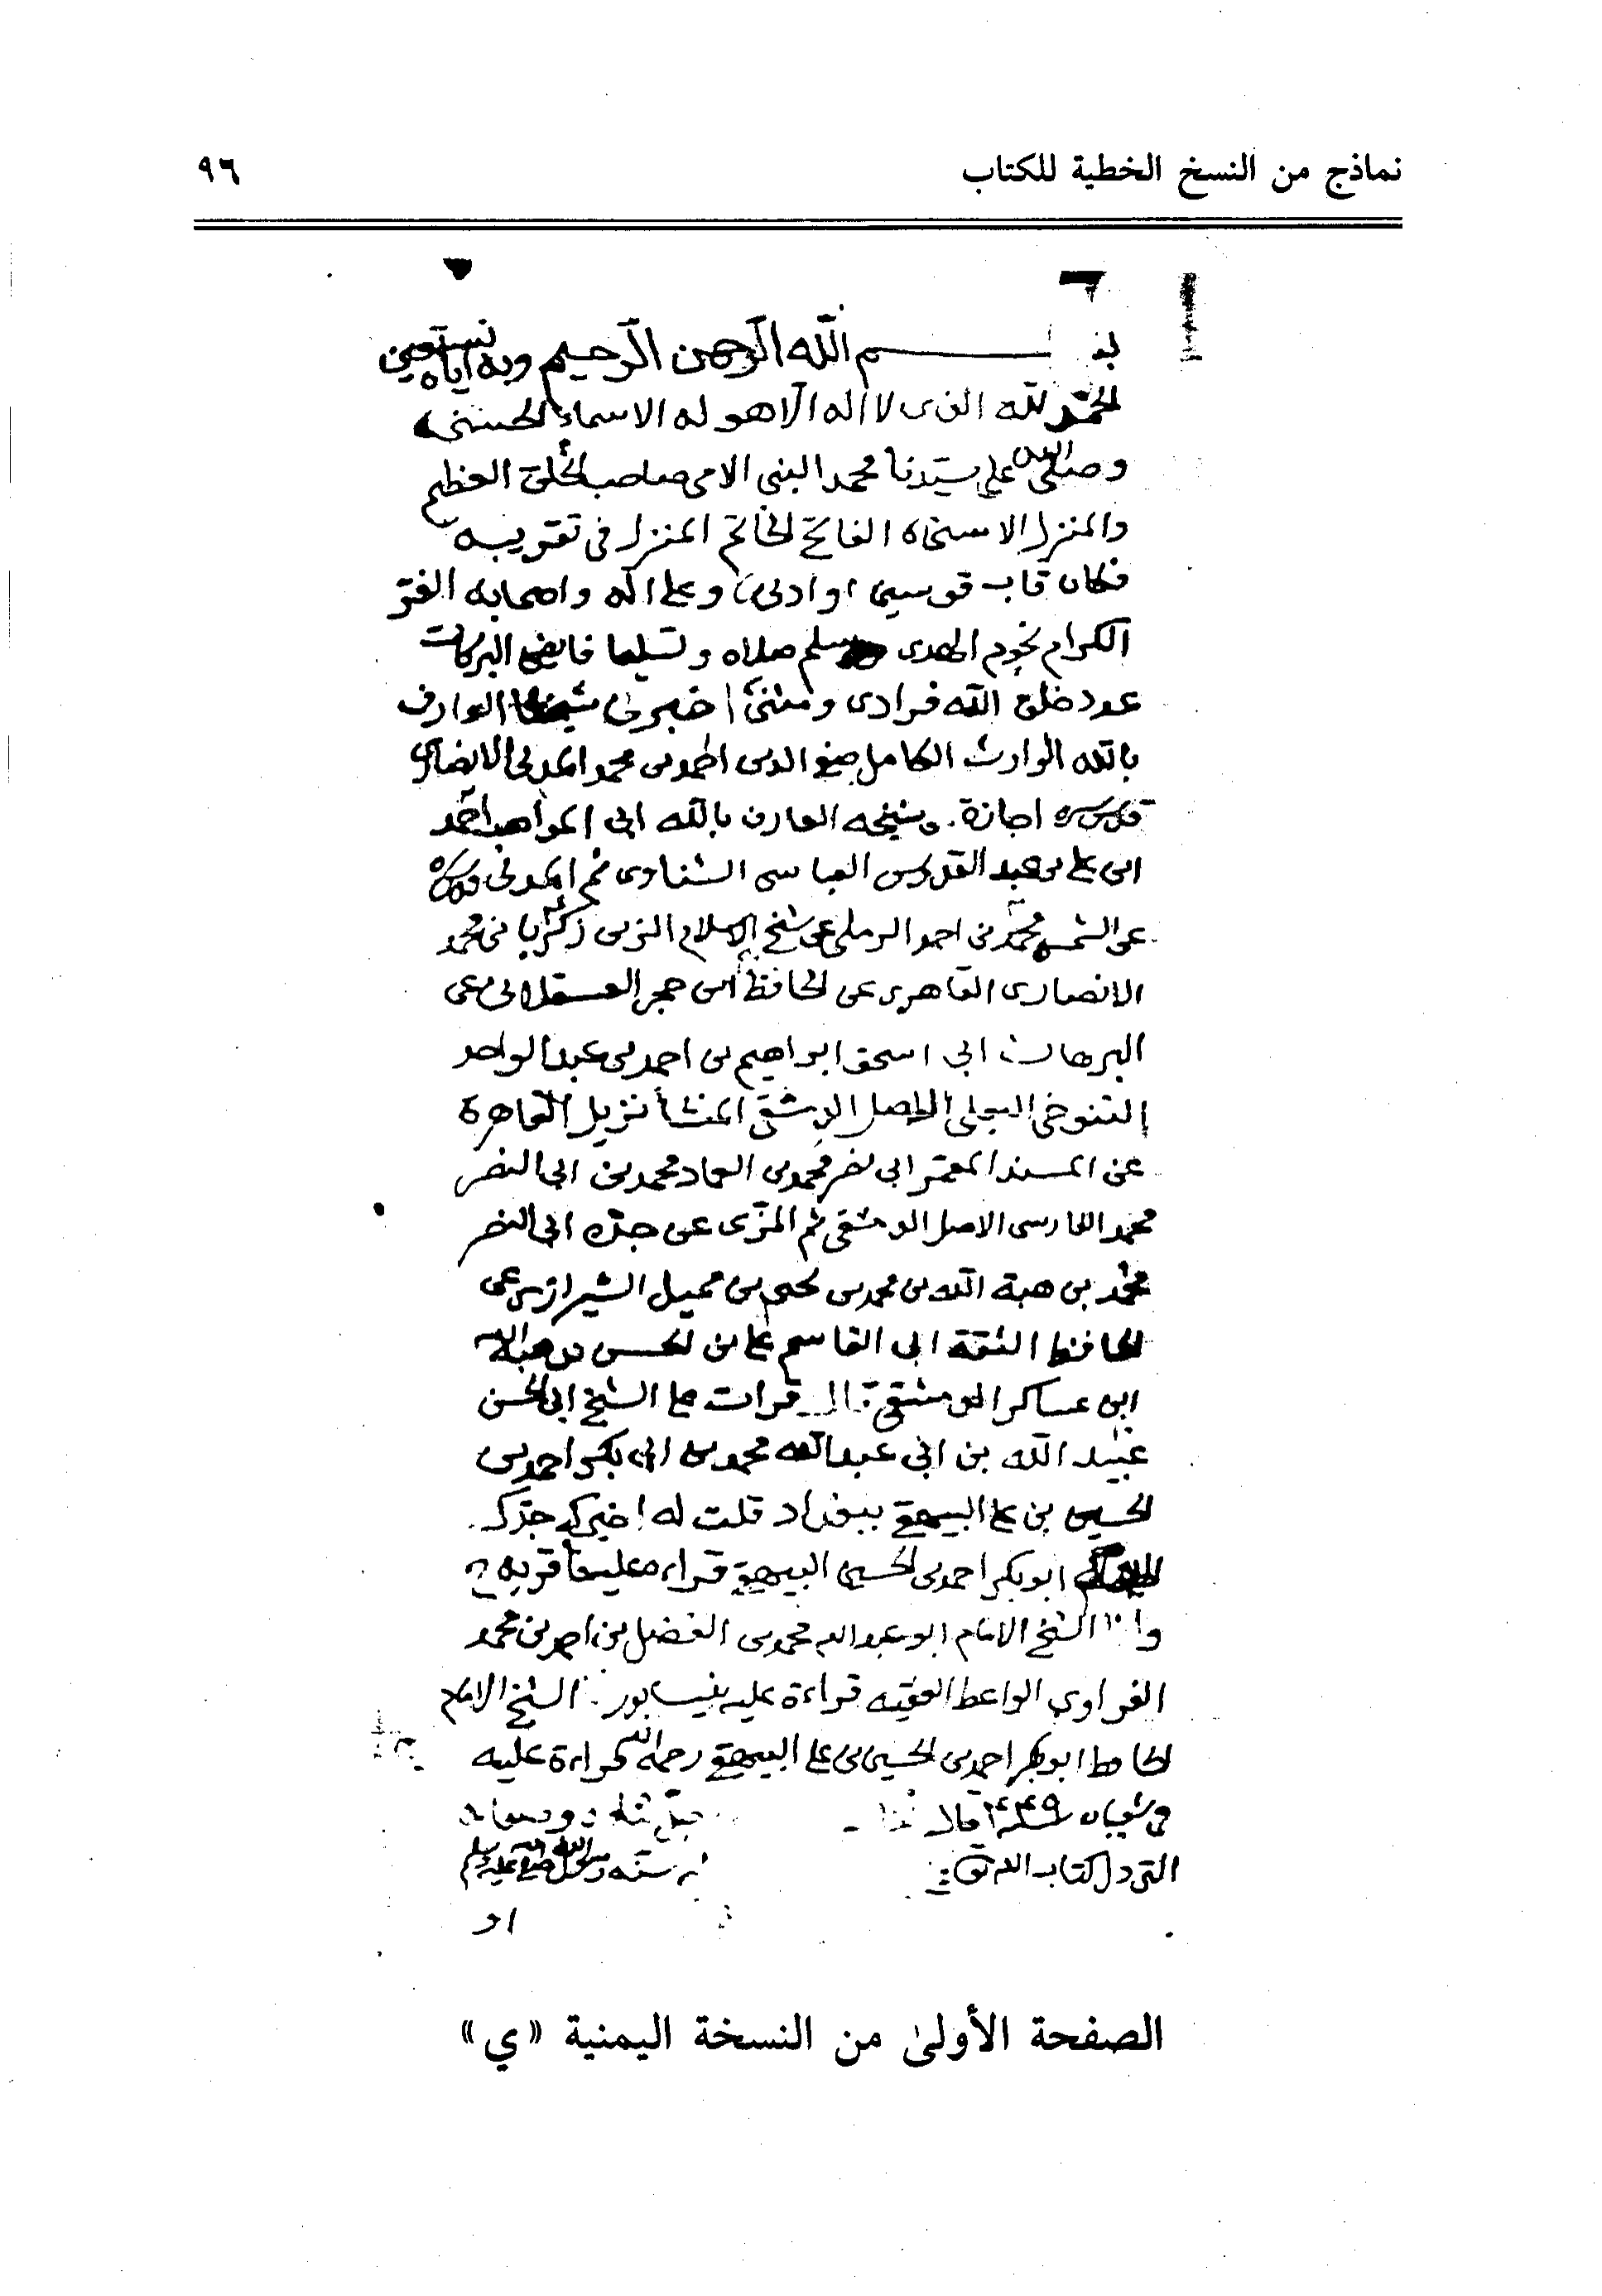 نماذج من النسخ الخطية للكتاب ٩٦
بسم الله الرحمن الرحيم وبه اياه نستعين
الحمد لله الذى لا اله الا هو له الاسماء الحسنى
وصلى الله على سيدنا محمد النبى الامى صاحب الخلق العظيم
والمنزل الاسنى الفاتح الخاتم المنزل فى تقريبه
فكان قاب قوسين او ادنى وعلى اله واصحابه الغر
الكرام نجوم الهدى وسلم صلاه وتسليما فايض البركات
عدد خلق الله فرادى ومثنى اخبرنى شيخنا العارف
بالله الوارث الكامل صفى الدين احمد بن محمد المدنى الانصارى
قدس سره اجازة. وشيخه العارف بالله ابى المواهب احمد
ابن على بن عبد القدوس العباسى الشناوى ثم المدنى قدس سره
عن الشمس محمد بن احمد الرملى عن شيخ الاسلام الزين زكريا بن محمد
الانصارى القاهرى عن الحافظ ابن حجر العسقلانى عن
البرهان ابى اسحق ابراهيم بن احمد بن عبد الواحد
التنوخى البعلى الاصل الدمشقى المنشأ نزيل القاهرة
عن المسند المعمر ابى نصر محمد بن العماد محمد بن ابى النصر
محمد الفارسى الاصل الدمشقى ثم المزى عن جده ابى النصر
محمد بن هبة الله بن محمد بن يحيى بن مميل الشيرازى عن
الحافظ الثقة ابى القاسم على بن الحسن بن هبة الله
ابن عساكر الدمشقى قال قرات على الشيخ ابى الحسن
عبيد الله بن ابى عبد الله محمد بن ابى بكر احمد بن
الحسين بن على البيهقى ببغداد قلت له اخبرك جدك
ابو بكر احمد بن الحسين البيهقى قراءه عليه فاقر به
وانا الشيخ الامام ابو عبد الله محمد بن الفضل بن احمد بن محمد
الفراوى الواعظ الفقيه قراءة عليه بنيسابور الشيخ الامام
الحافظ ابو بكر احمد بن الحسين بن على البيهقى رحمه الله قراءة عليه
فى شعبان سنة ٤٤٩ قال
التى دل كتاب الله سنة رسول الله صلى الله عليه وسلم
او
الصفحة الأولى من النسخة اليمنية «ي»